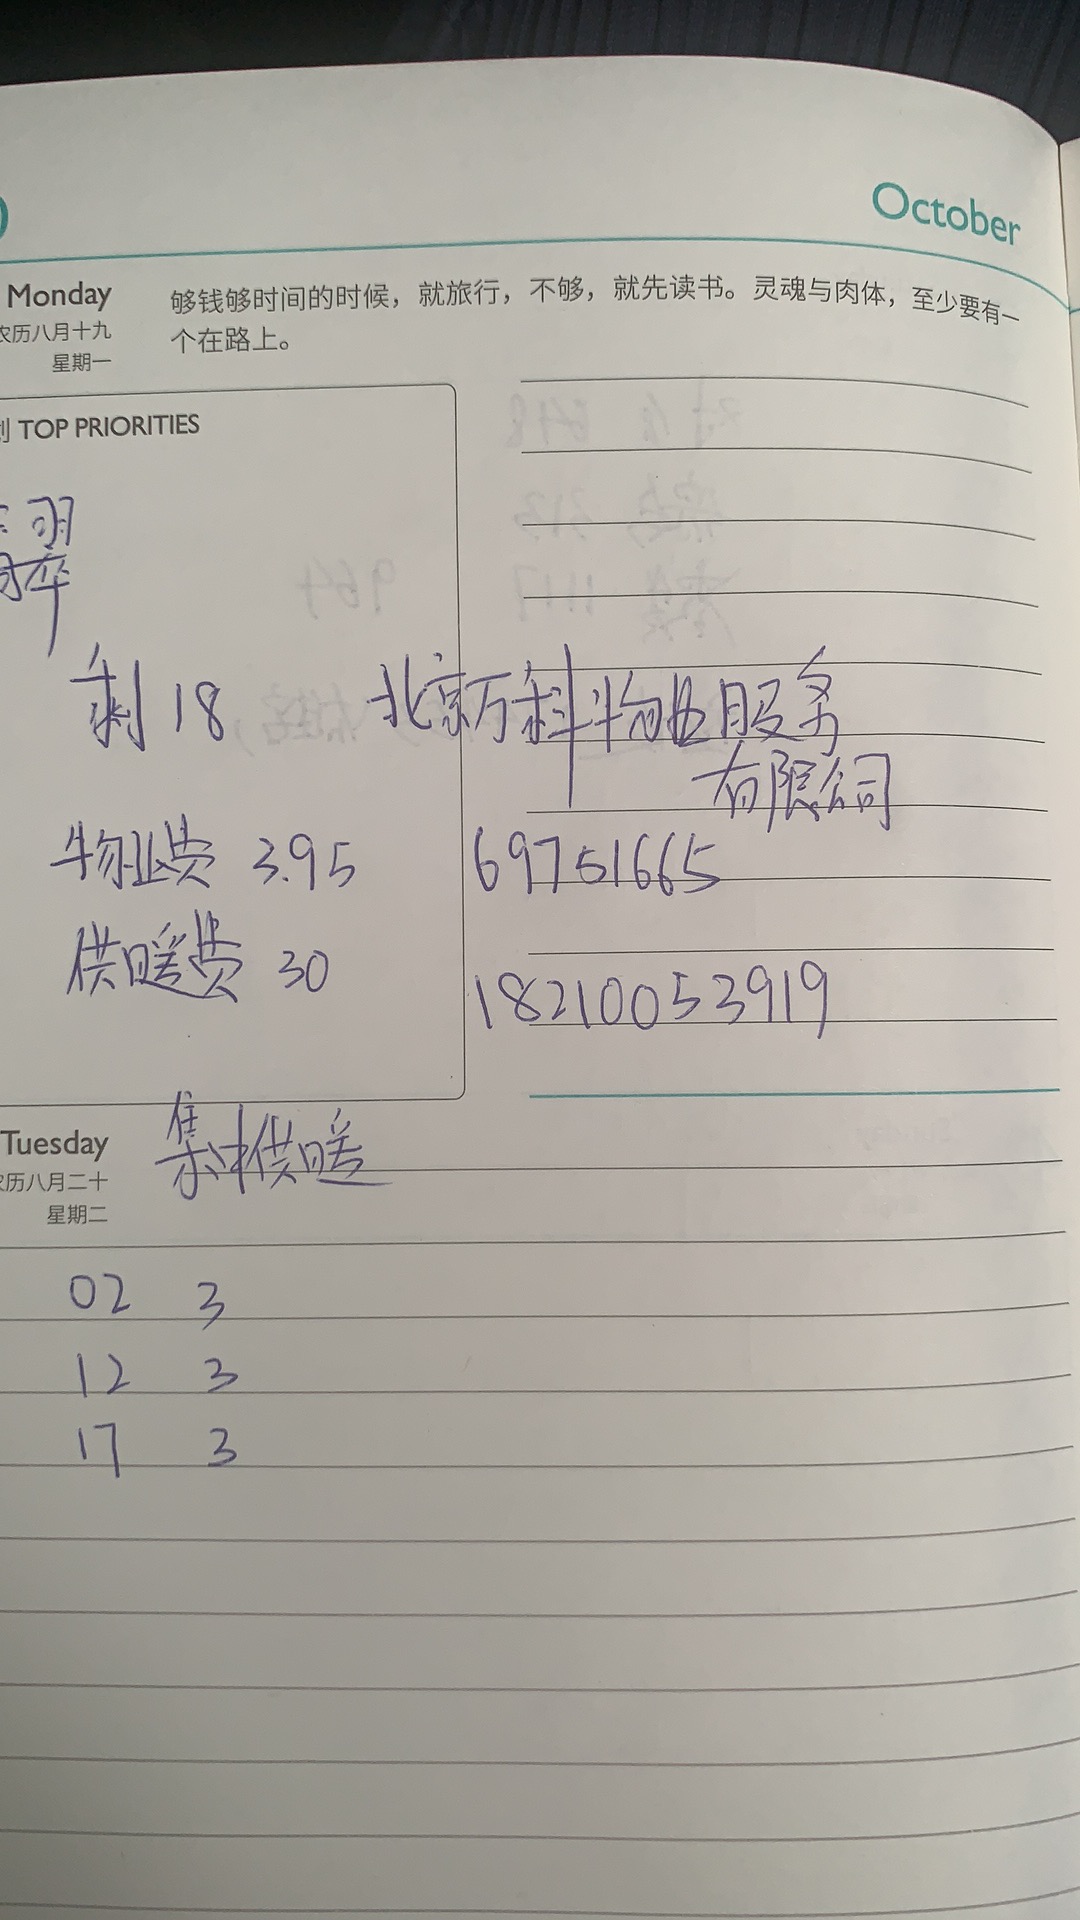 October
Monday
农历八月十九
星期一
够钱够时间的时候，就旅行，不够，就先读书。灵魂与肉体，至少要有一
个在路上。
划 TOP PRIORITIES
翠
剩18 北京万科物业服务
有限公司
物业费 3.95 69751665
供暖费 30
18210053919
集中供暖
Tuesday
农历八月二十
星期二
02 3
12 3
17 3